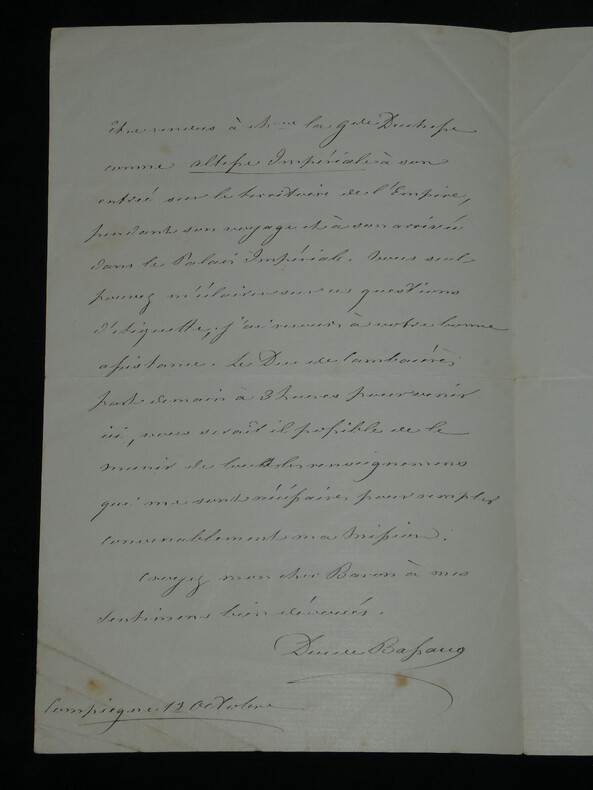 être rendus à Mme la Gde Duchesse
comme altesse Impériale à son
entrée sur le territoire de l'Empire,
pendant son voyage et à son arrivée
dans le Palais Impérial. Vous seul
pouvez m'éclairer sur ces questions
d'étiquette, j'ai recours à votre bonne
assistance. Le Duc de Cambacérès
part demain à 3 heures pour venir
ici, vous serait il possible de le
munir de tous les renseignemens
qui me sont nécessaires pour remplir
convenablement ma mission.
Croyez mon cher Baron à mes
sentimens bien dévoués.
Duc de Bassano
Compiègne 12 Octobre